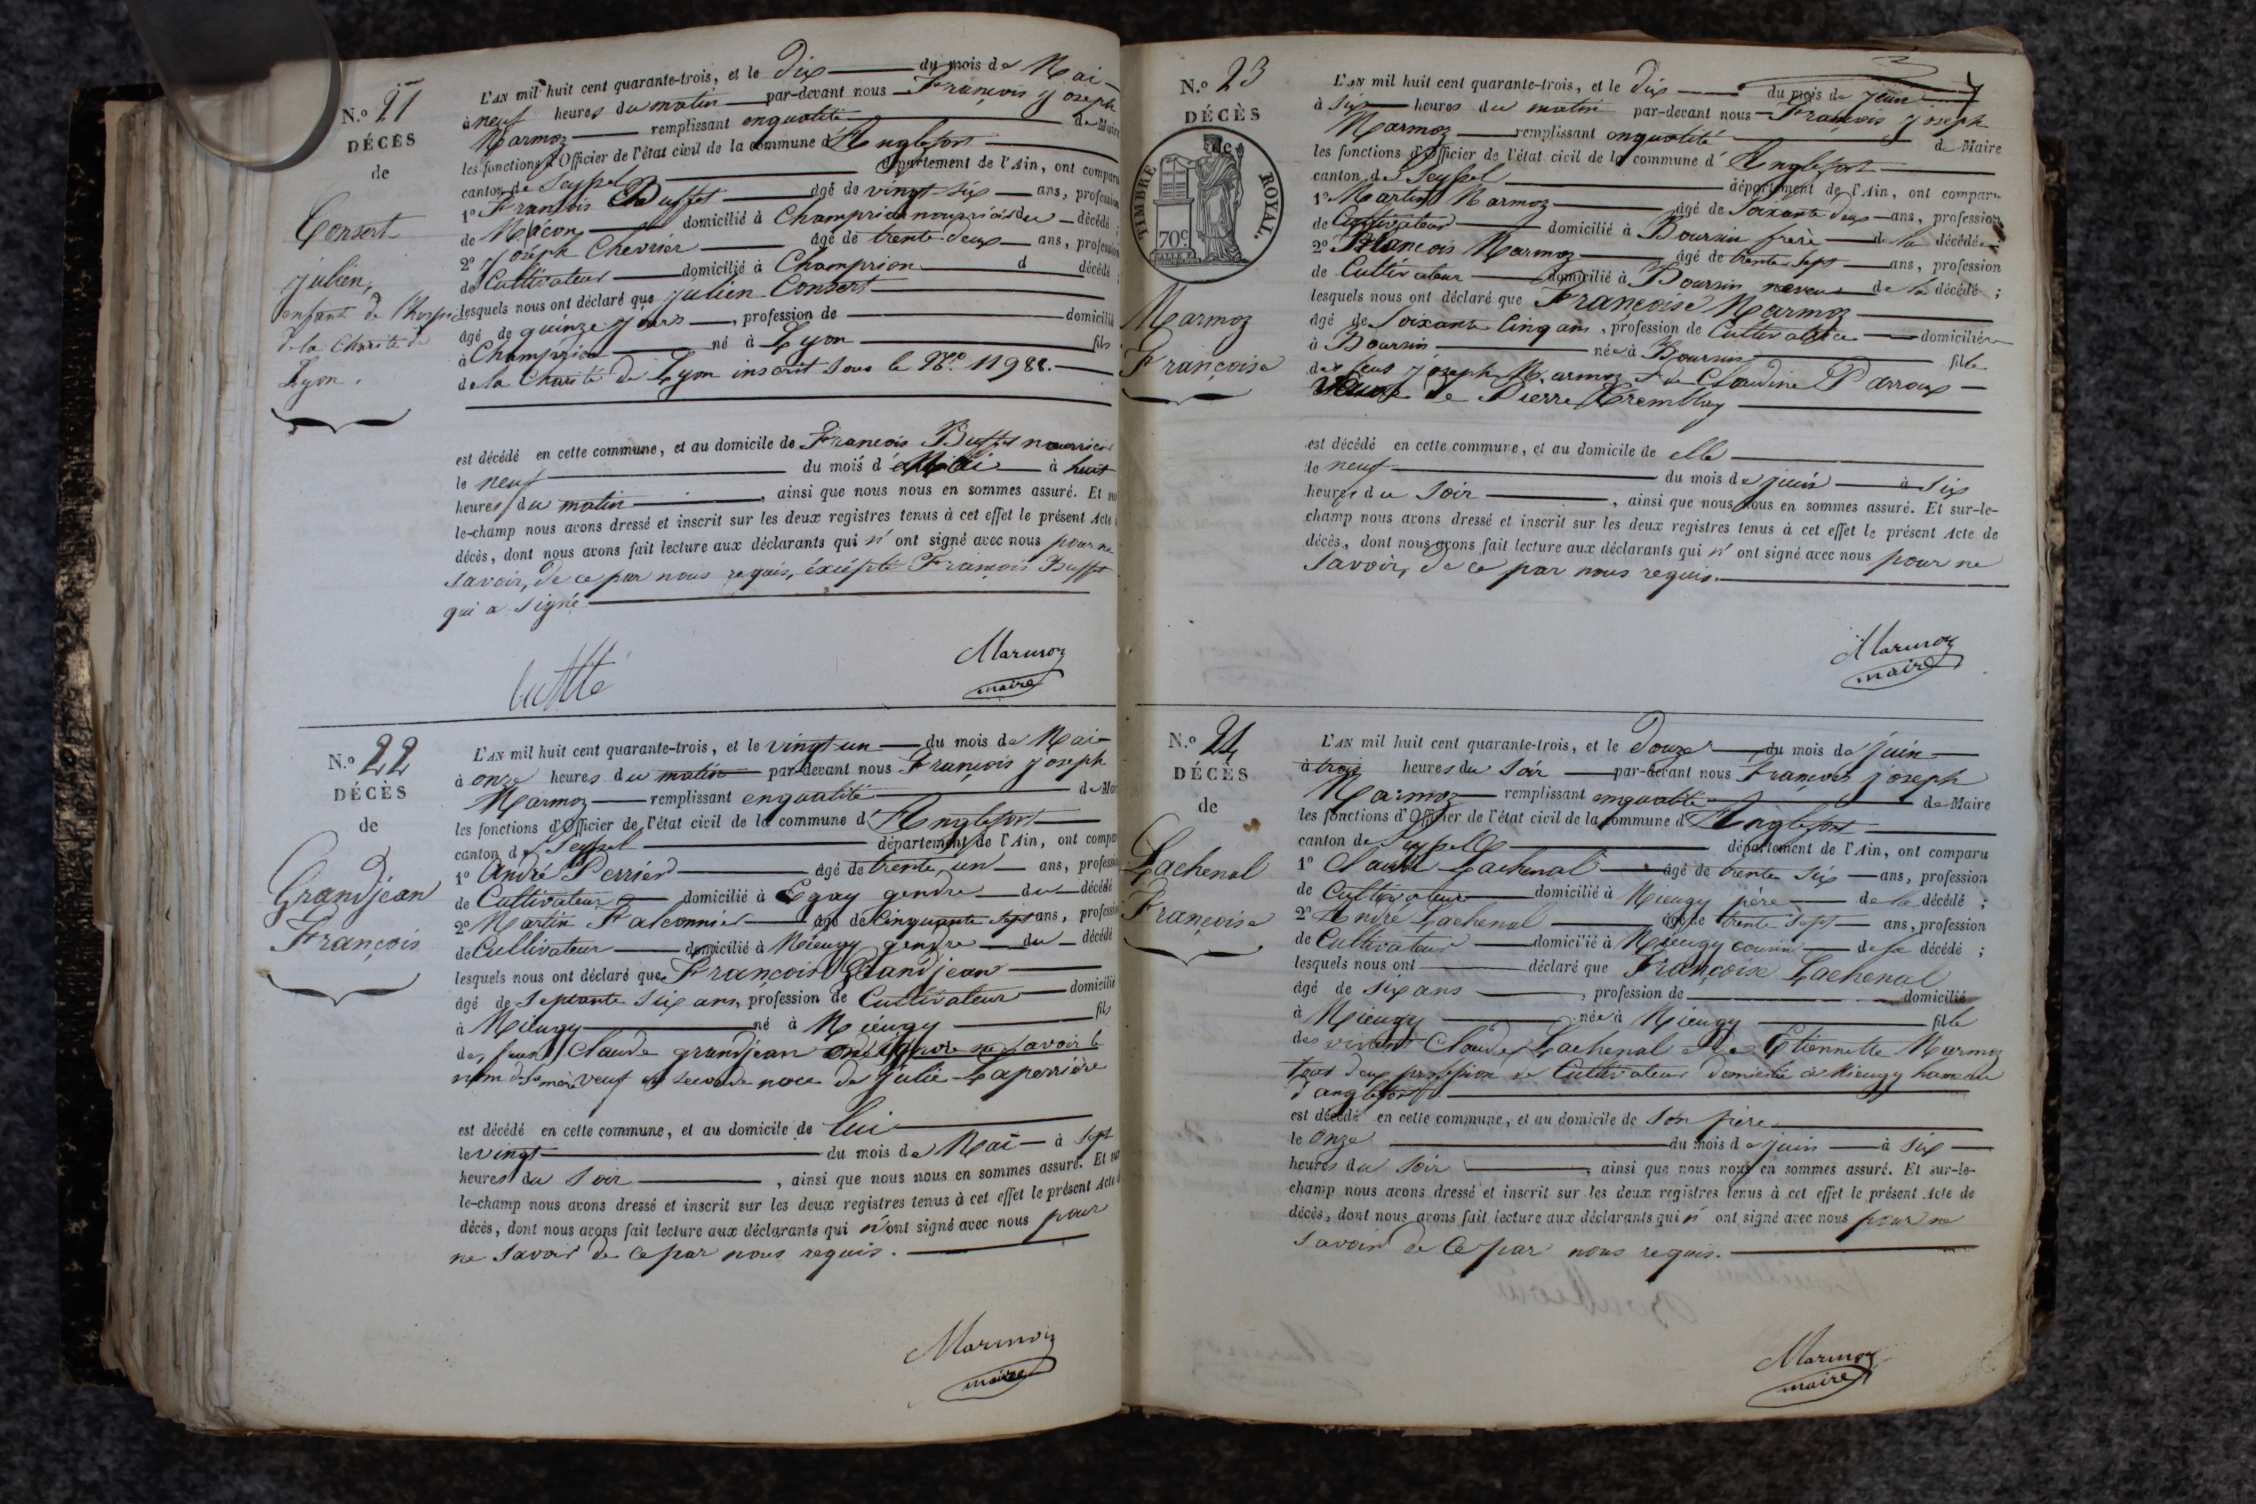 N.º 21
DÉCÈS
de
Consert
julien,
enfant de l'hospice
de la Charité de
Lyon.
L'AN mil huit cent quarante-trois, et le dix du mois de Mai
à neuf heures du matin par-devant nous François joseph
Marmoz remplissant enqualité de Maire
les fonctions d'Officier de l'état civil de la commune d'Anglefort
canton de Seyssel département de l'Ain, ont comparu
1º François Buffet âgé de vingt-six ans, profession
de Maçon domicilié à Champrion nourricier du décédé ;
2º joseph Chevrier âgé de trente-deux ans, profession
de Cultivateur domicilié à Champrion d décédé ;
lesquels nous ont déclaré que julien Consert
âgé de quinze jours, profession de domicilié
à Champrion né à Lyon fils
de la Charité de Lyon inscrit sous le Nº. 11988.
est décédé en cette commune, et au domicile de François Buffet nourricier
le neuf du mois d Mai à huit
heures du matin, ainsi que nous nous en sommes assuré. Et sur
le-champ nous avons dressé et inscrit sur les deux registres tenus à cet effet le présent Acte
décès, dont nous avons fait lecture aux déclarants qui n'ont signé avec nous pour ne
savoir, de ce par nous requis, éxcépté François Buffet
qui a signé
Marmoz
maire
N.º 22
DÉCÈS
de
Grandjean
François
L'AN mil huit cent quarante-trois, et le vingt-un du mois de Mai
à onze heures du matin par-devant nous François joseph
Marmoz remplissant enqualité de Maire
les fonctions d'Officier de l'état civil de la commune d'Anglefort
canton d Seyssel département de l'Ain, ont comparu
1º André Perrier âgé de trente un ans, profession
de Cultivateur domicilié à Egay gendre du décédé
2º Martin Falconnier âgé de Cinquante sept ans, profession
de Cultivateur domicilié à Mieugy gendre du décédé
lesquels nous ont déclaré que François Grandjean
âgé de septante six ans, profession de Cultivateur domicilié
à Mieugy né à Mieugy fils
de feu Claude grandjean ne savoir le
nom de sa mère veuf en seconde noce de julie Laperrière
est décédé en cette commune, et au domicile de lui
le vingt du mois de Mai à sept
heures du soir, ainsi que nous nous en sommes assuré. Et sur
le-champ nous avons dressé et inscrit sur les deux registres tenus à cet effet le présent Acte
décès, dont nous avons fait lecture aux déclarants qui n'ont signé avec nous pour
ne savoir de ce par nous requis.
Marmoz
maire
N.º 23
DÉCÈS
TIMBRE ROYAL.
70c.
Marmoz
Françoise
L'AN mil huit cent quarante-trois, et le dix du mois de juin
à six heures du matin par-devant nous François joseph
Marmoz remplissant enqualité de Maire
les fonctions d'Officier de l'état civil de la commune d'Anglefort
canton de Seyssel département de l'Ain, ont comparu
1º Martin Marmoz âgé de Soixante deux ans, profession
de Cultivateur domicilié à Boursin frère de la décédée ;
2º François Marmoz âgé de trente sept ans, profession
de Cultivateur domicilié à Boursin neveu de la décédé ;
lesquels nous ont déclaré que Françoise Marmoz
âgé de Soixante Cinq ans, profession de Cultivatrice domiciliée
à Boursin née à Boursin fille
des feus joseph Marmoz et de Claudine Parroux
Veuve de Pierre Tremblay
est décédé en cette commune, et au domicile de elle
le neuf du mois de juin à six
heures du soir, ainsi que nous nous en sommes assuré. Et sur-le-
champ nous avons dressé et inscrit sur les deux registres tenus à cet effet le présent Acte de
décès, dont nous avons fait lecture aux déclarants qui n'ont signé avec nous pour ne
savoir, de ce par nous requis.
Marmoz
maire
N.º 24
DÉCÈS
de
Lachenal
Françoise
L'AN mil huit cent quarante-trois, et le Douze du mois de juin
à trois heures du soir par-devant nous François joseph
Marmoz remplissant enqualité de Maire
les fonctions d'Officier de l'état civil de la commune d'Anglefort
canton de Seyssel département de l'Ain, ont comparu
1º Claude Lachenal âgé de trente six ans, profession
de Cultivateur domicilié à Mieugy père de la décédé ;
2º André Lachenal âgé de trente sept ans, profession
de Cultivateur domicilié à Mieugy cousin de la décédé ;
lesquels nous ont déclaré que Françoise Lachenal
âgé de six ans, profession de domicilié
à Mieugy née à Mieugy fille
des vivant Claude Lachenal et de Etiennette Marmoz
tous deux profession de Cultivateur domicilié à Mieugy hameau
d'anglefort
est décédé en cette commune, et au domicile de son père
le onze du mois de juin à six
heures du soir, ainsi que nous nous en sommes assuré. Et sur-le-
champ nous avons dressé et inscrit sur les deux registres tenus à cet effet le présent Acte de
décès, dont nous avons fait lecture aux déclarants qui n'ont signé avec nous pour ne
savoir de ce par nous requis.
Marmoz
maire